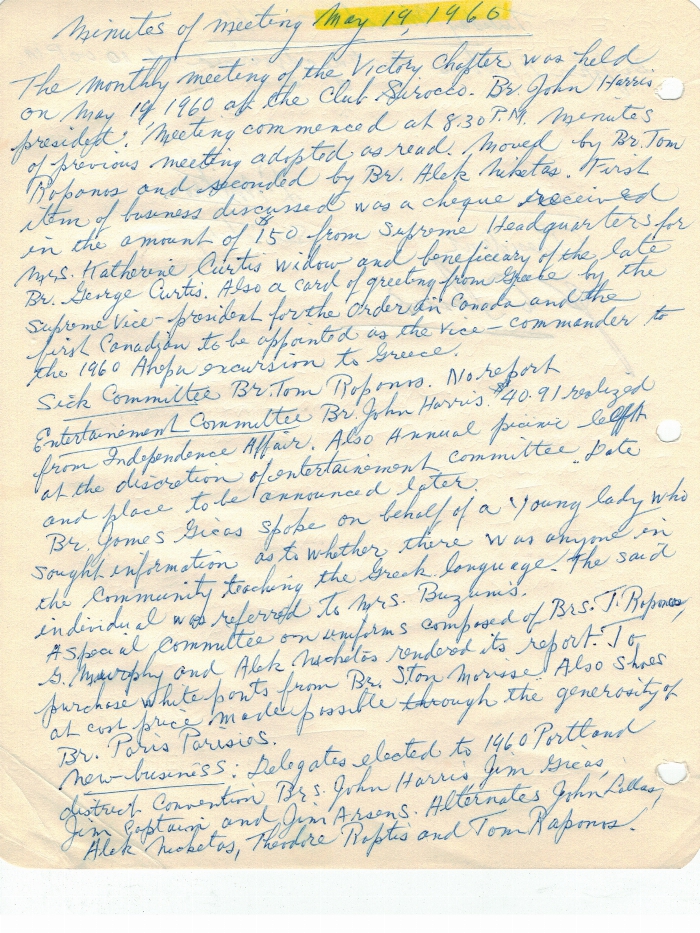 Minutes of meeting May 19, 1960
The monthly meeting of the Victory Chapter was held
on May 19 1960 at the Club Sirocco. Br. John Harris
president. Meeting commenced at 8.30 P.M. Minutes
of previous meeting adopted as read. Moved by Br. Tom
Raponos and seconded by Br. Alek Niketas. First
item of business discussed was a cheque received
in the amount of $150 from Supreme Headquarters for
Mrs. Katherine Curtis widow and beneficiary of the late
Br. George Curtis. Also a card of greeting from Greece by the
Supreme Vice-president for the Order in Canada and the
first Canadian to be appointed as the vice-commander to
the 1960 Ahepa excursion to Greece.
Sick Committee Br. Tom Raponos. No report
Entertainement Committee Br. John Harris. $40.91 realized
from Independence Affair. Also Annual picinic left
at the discretion of entertainement committee. Date
and place to be announced later.
Br. James Gicas spoke on behalf of a young lady who
sought information as to whether there was anyone in
the Community teaching the Greek language. The said
individual was referred to Mrs. Buzunis.
A special committee on uniforms composed of Brs. T. Raponos,
G. Murphy and Alek Nicketas rendered its report. To
purchase white pants from Br. Stan Morisse. Also shoes
at cost price made possible through the generosity of
Br. Paris Parisies.
New-business: Delegates elected to 1960 Portland
district Convention Brs. John Harris Jim Gicas,
Jim Captain and Jim Arsens. Alternates John Lallas,
Alek Nicketas, Theodore Raptis and Tom Raponos.